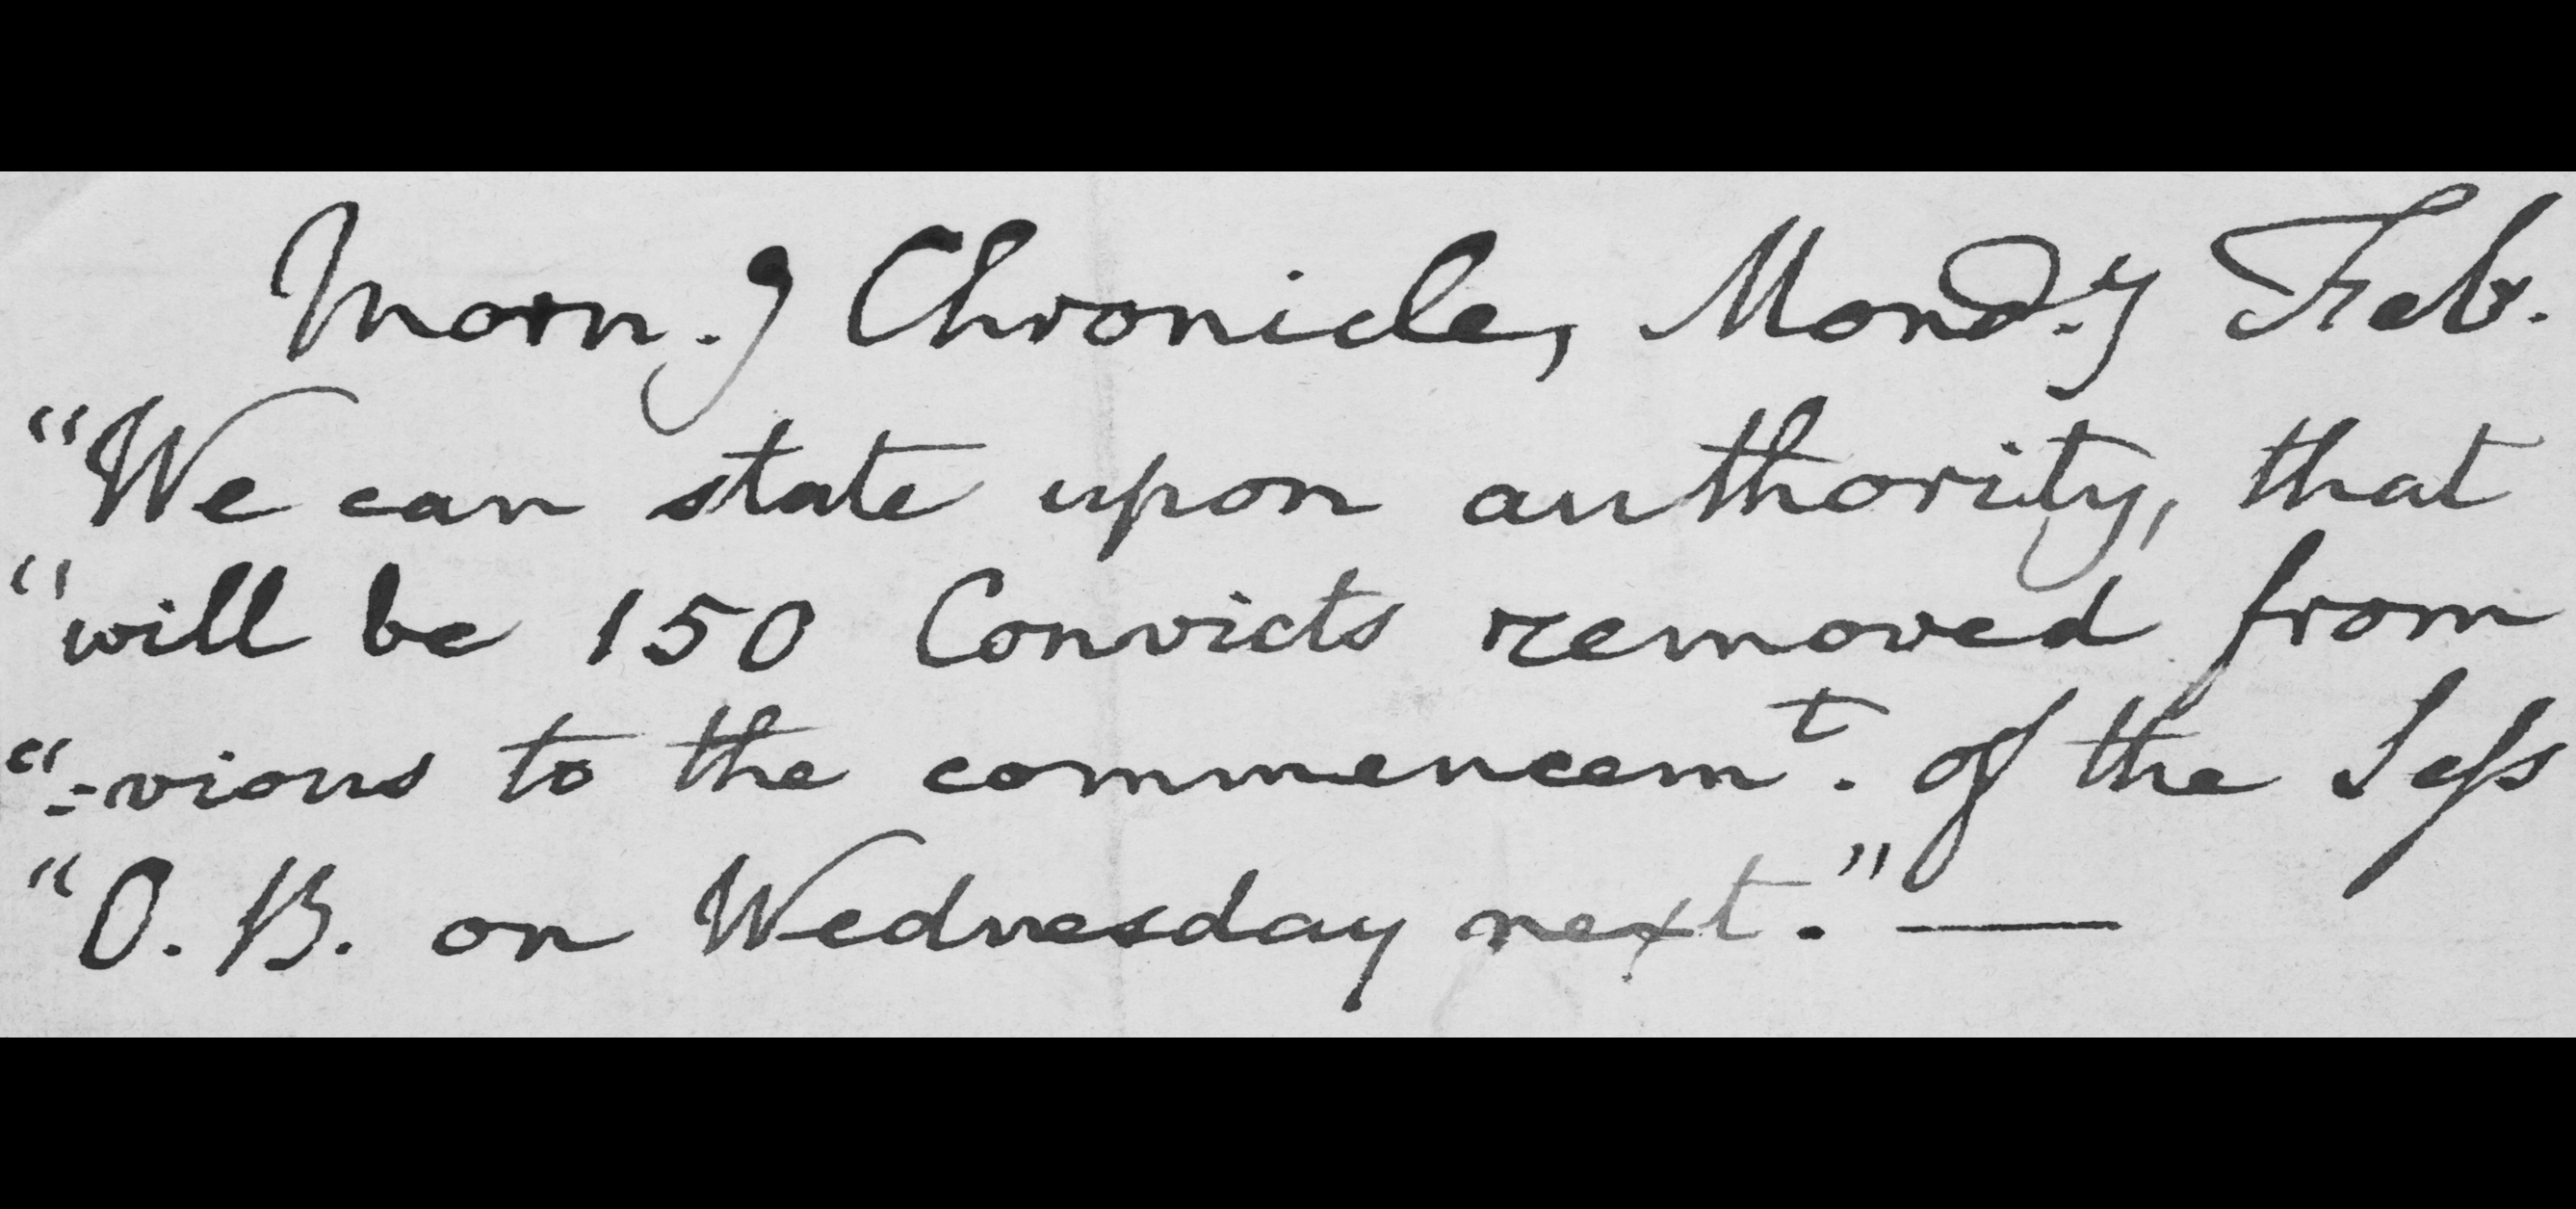 Morn.g Chronicle, Mond.y Feb.
"We can state upon authority, that
"will be 150 Convicts removed from
"=vious to the commencem.t of the Sess
"O. B. on Wednesday next."—